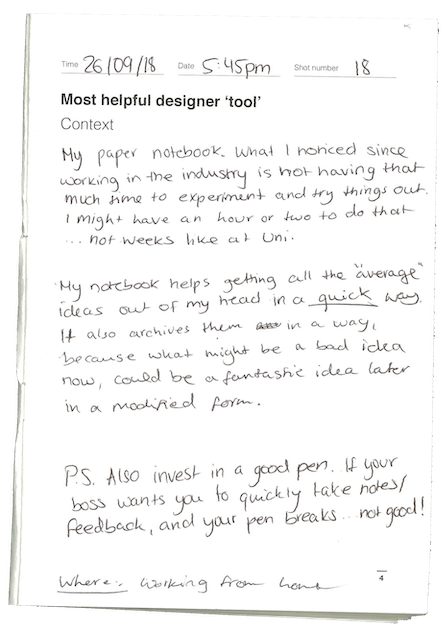 Time 26/09/18 Date 5:45pm Shot number 18
Most helpful designer 'tool'
Context
My paper notebook. What I noticed since
working in the industry is not having that
much time to experiment and try things out.
I might have an hour or two to do that
... not weeks like at Uni.
My notebook helps getting all the "average"
ideas out of my head in a quick way.
It also archives them in a way,
because what might be a bad idea
now, could be a fantastic idea later
in a modified form.
P.S. Also invest in a good pen. If your
boss wants you to quickly take notes/
feedback, and your pen breaks ... not good!
Where: Working from home
4